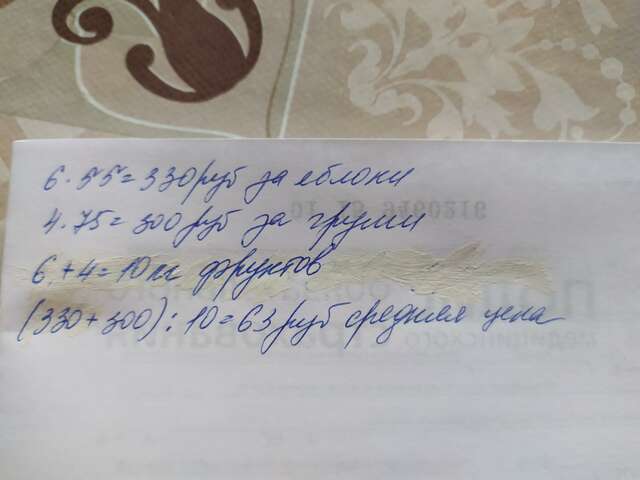 6 · 55 = 330 руб за яблоки
4 · 75 = 300 руб за груши
6 + 4 = 10 кг фруктов
(330 + 300) : 10 = 63 руб средняя цена